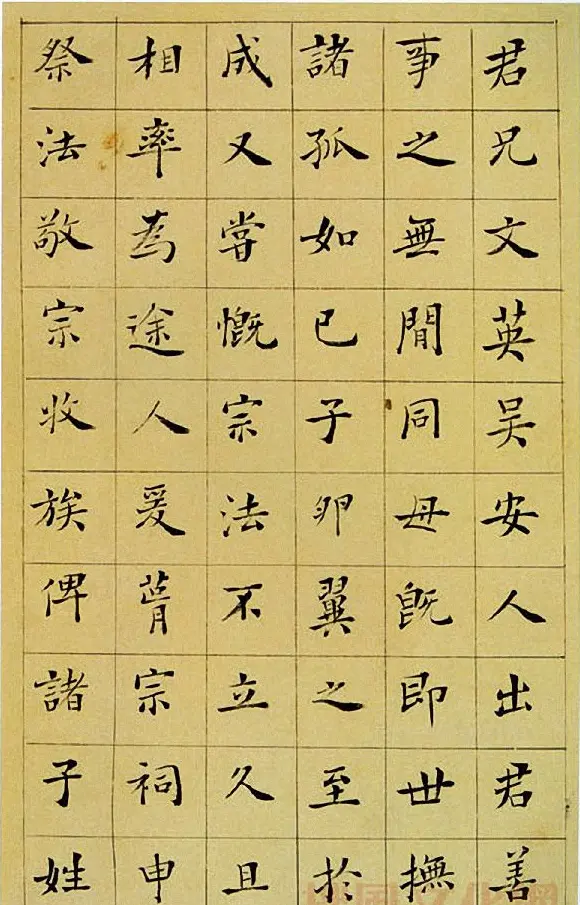 君兄文英吴安人出君善
事之無閒同母既即世撫
諸孤如己子卵翼之至於
成又嘗慨宗法不立久且
相率為途人爰葺宗祠申
祭法敬宗收族俾諸子姓